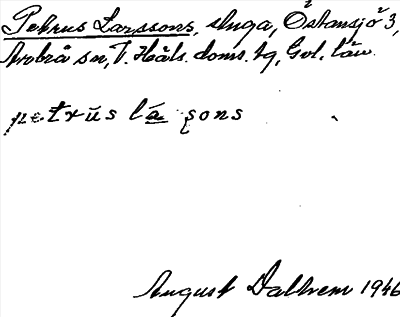 Petrus Larssons, stuga, Östansjö 3,
Arbrå sn, N. Häls. doms. tg, Gvl. län.
petrūs lā sons
August Dalhrem 1946